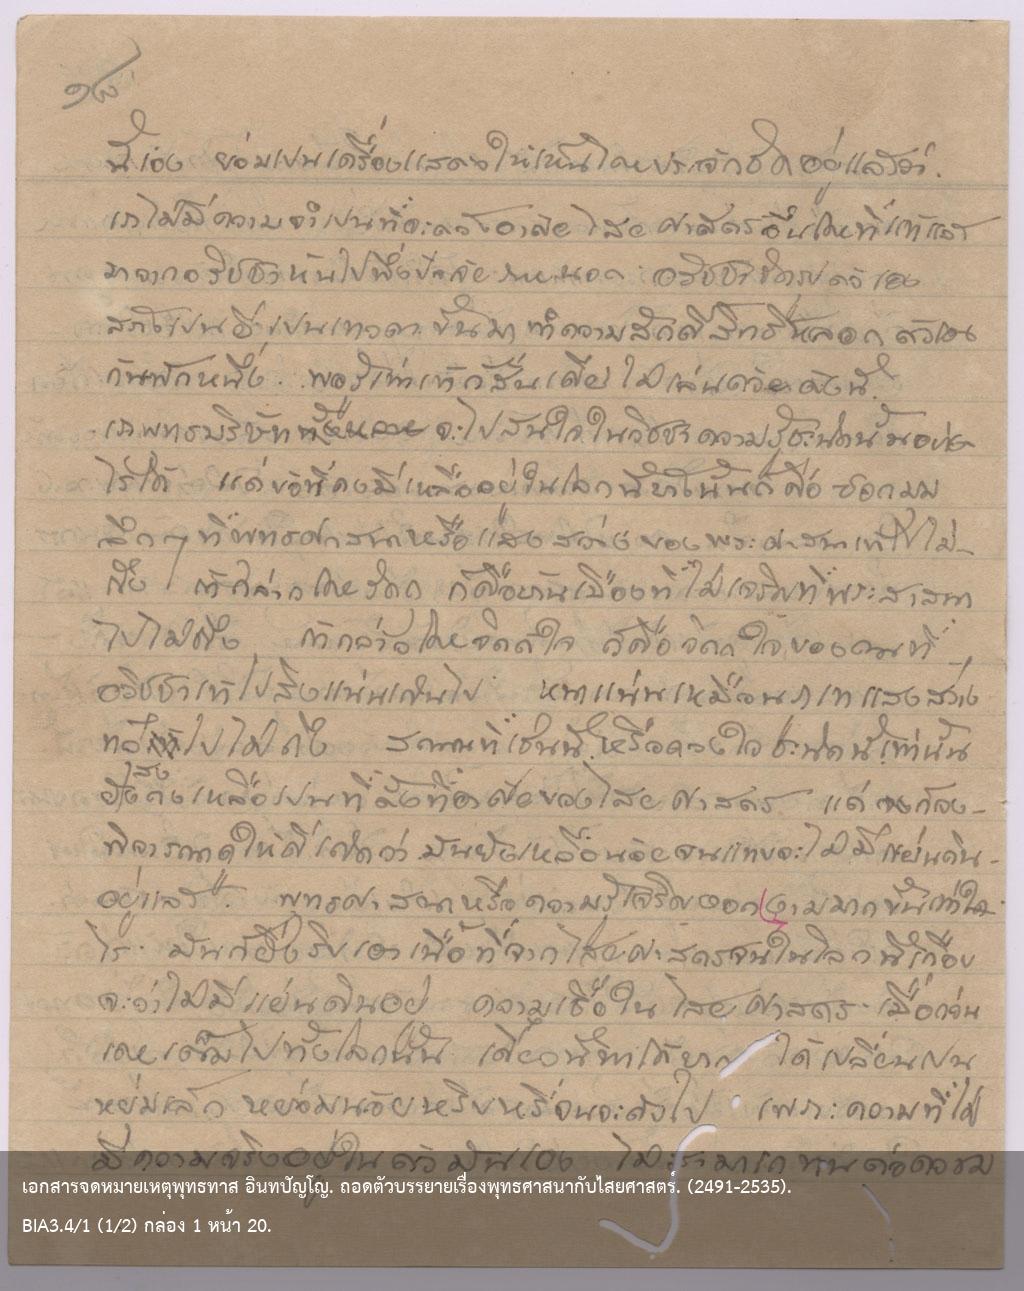 ๑๘
นี้เอง ย่อมเปนเครื่องแสดงให้เห็นโดยประจักษ์ชัดอยู่แล้วว่า.
เราไม่มีความจำเปนที่จะต้องอาศัย ไสยศาสตร์อื่นใดที่
มาจากอวิชชา อวิชชา ตัวเอง
เปนเทวดา ขึ้นมา ทำความศักดิ์สิทธิ์หลอก ตัวเอง
กันพักหนึ่ง. พอรู้เท่า ก็สิ้น ไม่เล่นด้วย ดังนี้.
เราพุทธบริษัท จะไปสนใจในวิชชาความรู้ชะนิดนั้นอย่าง
ไรได้ แต่ข้อที่คงมีเหลืออยู่ในโลกนี้บ้างนั้นก็คือ ซอกมุม
ลึก ๆ ที่พุทธศาสนาหรือแสงสว่างของพระศาสนาเข้าไปไม่
ถึง ถ้ากล่าวโดย ก็คือบ้านเมืองที่ไม่เจริญที่พระสาสนา
ไปไม่ถึง ถ้ากล่าวโดยจิตต์ใจ ก็คือจิตต์ใจของคนที่
อวิชชาเข้าไปสิงแน่นเกินไป หนาแน่นเหมือนภูเขาแสงสว่าง
เข้าไปไม่ถึง สถานที่เช่นนี้ หรือดวงใจชะนิดนี้เท่านั้น
ยังคงเหลือเปนที่ตั้งที่อาศัยของไสยศาสตร์ แต่
พิจารณาดูให้ดีเถิดว่า มันยังเหลือน้อยจนแทบจะไม่มีแผ่นดิน
อยู่แล้ว. พุทธศาสนาหรือความรู้เจริญงอกงามมากขึ้นเท่าใด
ไร มันก็ยิ่งริบเอาเนื้อที่จากไสยศาสตร์จนในโลกนี้เกือบ
จะว่าไม่มีแผ่นดินอยู่ ความเชื่อในไสยศาสตร์ เมื่อก่อน
เคยเต็มไปทั้งโลกนั้น เดี๋ยวนี้หาได้ยาก ได้เปลี่ยนเปน
หยุ่มเล็ก หย่อมน้อยหริบหรี่จนจะดับไป เพราะความที่ไม่
มีความจริงอยู่ในตัวมันเอง ไม่สามารถทนต่อความ
เอกสารจดหมายเหตุพุทธทาส อินทปัญโญ. ถอดตัวบรรยายเรื่องพุทธศาสนากับไสยศาสตร์. (2491-2535).
BIA3.4/1 (1/2) กล่อง 1 หน้า 20.